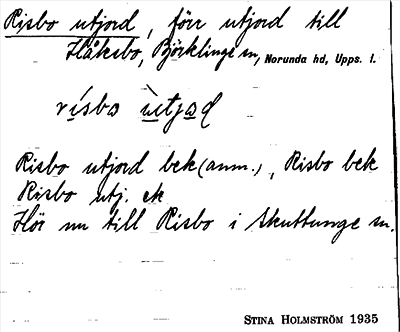 Risbo utjord, förr utjord till
Håksbo, Björklinge sn, Norunda hd, Upps. l.
rísbo ùtjod
Risbo utjord bek (anm.), Risbo bek
Risbo utj. ek
Hör nu till Risbo i Skuttunge sn.
STINA HOLMSTRÖM 1935